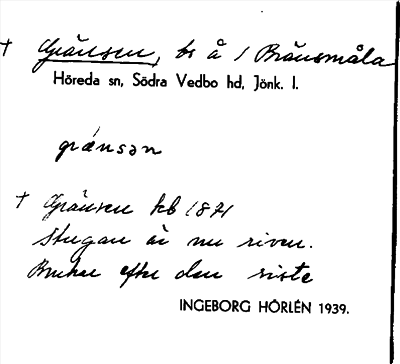 † Gränsen, bs å 1 Bränsmåla
Höreda sn, Södra Vedbo hd, Jönk. l.
grǽnsən
† Gränsen kb 1871
Stugan är nu riven.
Bruken efter den siste
INGEBORG HÖRLÉN 1939.